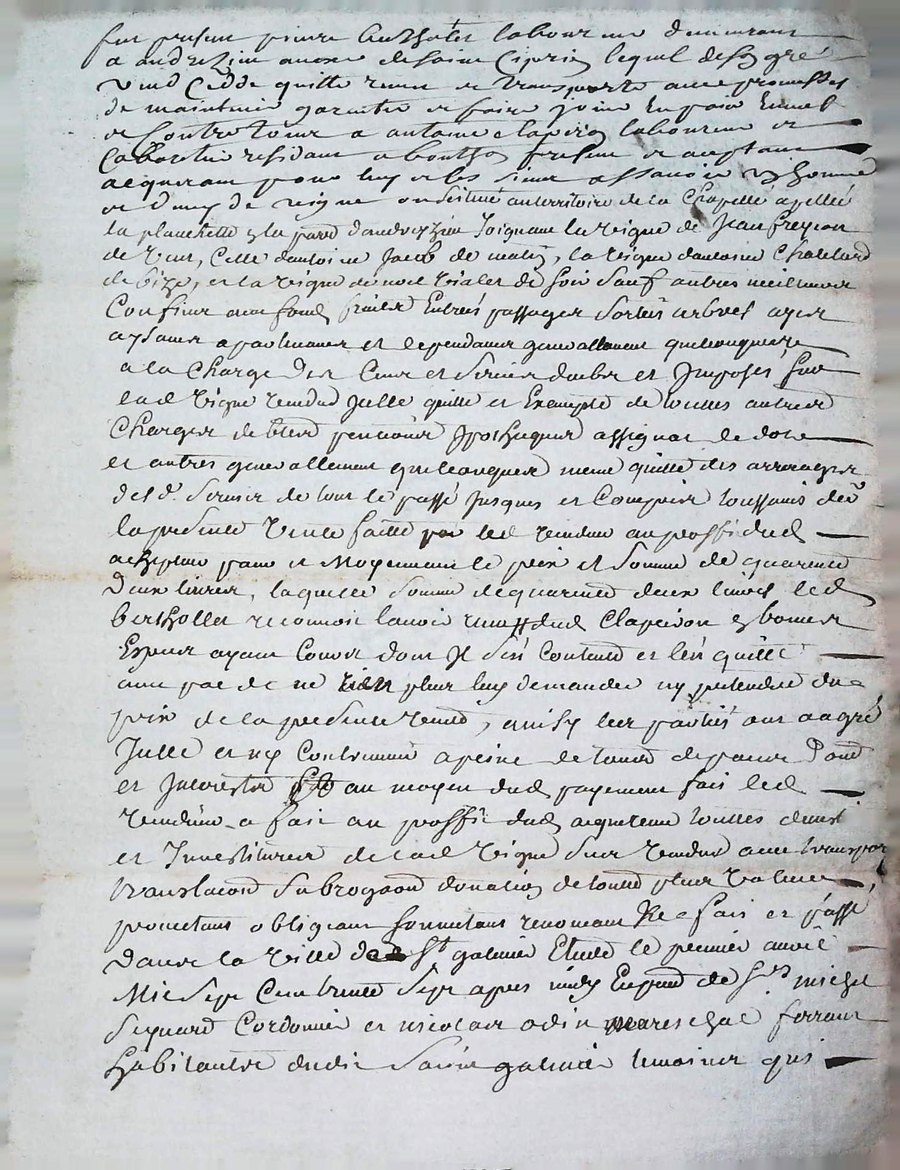 fut present pierre berthollet laboureur demeurant
a andrezieu annexe de saint Ciprien lequel de son gré
vend Cedde quitte remet et transporte avec promesses
de maintenir garentir et faire jouir En paix Envers
et Contre tous a antoine clapeiron laboureur et
Cabartier residant a bouthéon present et acceptant
acquereant pour luy et les siens assavoir
et demy de vigne situé au territoire de la Chapelle apellé
la planchette & la parr d'andrezieu Joignant la vigne de Jean freycon
de vent, Celle d'antoine Jacob de matin, la vigne d'antoine Chatelard
de bize, et la vigne de noel vialet de soir Sauf autres meilleurs
Confins avec fond fruits Entrées passages Sorties arbres ayes
aysances apartenances et dependances generallement quelconques
a la Charge des Cens et servis deubs et Imposés sur
lad vigne vendue Jcelle quitte et Exempte de touttes autres
Charges debtes pentions ypotheques assignat de dote
et autres generallement quelconques meme quitte des arrerages
desd. servis de tout le passé Jusques et Compris toussaints der
la presente vente faitte par led vendeur au proffit dud
acheptant pour et Moyennant le prix et Somme de quarente
Deux livres, laquelle Somme de quarente deux livres led
berthollet reconnoit lavoir receu dud Clapeiron En bonnes
Especes ayant Cours dont Jl s'en Contente et l'en quitte
avec pacte de ne rien plus luy demander ny pretendre du
prix de la presente vente, ainsy les parties ont aagré
Jcelle et ny Contrevenir a peine de tous depens Dom
et Jnterests Et au moyen dud payement fait led
vendeur a fait au proffit dud acquereur touttes demist
et Jnvestitures de lad vigne sus vendue avec transport
translation subrogation donation de toutte plus valeur
promettant obligeant soumettant renonceant &c fait et passé
Dans la ville de St galmier Etude le premier avril
Mil sept Cent trente sept apres midy En presence de Srs michel
Seynard Cordonnier et nicolas odin mareschal ferrant
habitants dudit Saint galmier temoins qui